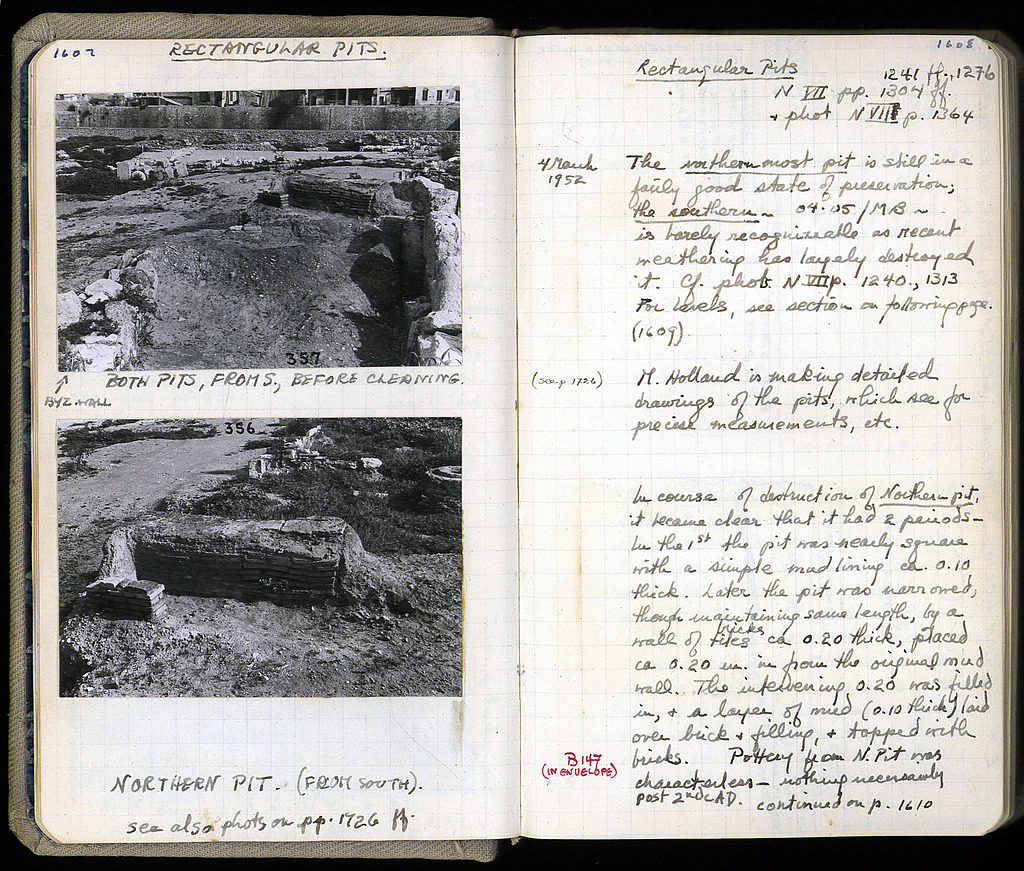 1607
RECTANGULAR PITS.
357
↑ BOTH PITS, FROM S., BEFORE CLEANING.
BYZ. WALL
356
NORTHERN PIT. (FROM SOUTH).
see also phots on pp. 1726 ff.
1608
Rectangular Pits 1241 ff., 1276
N VII pp. 1304 ff.
+ phot N VII p. 1364
4 March
1952
The northernmost pit is still in a
fairly good state of preservation;
the southern ~ 04.05/MB ~
is barely recognizeable as recent
weathering has largely destroyed
it. Cf. phot. N VII p. 1240., 1313
For levels, see section on following page.
(1609).
(see p. 1726)
M. Holland is making detailed
drawings of the pits, which see for
precise measurements, etc.
In course of destruction of Northern pit,
it became clear that it had 2 periods —
In the 1st the pit was nearly square
with a simple mud lining ca. 0.10
thick. Later the pit was narrowed,
though maintaining same length, by a
wall of tiles bricks ca 0.20 thick, placed
ca 0.20 m. in from the original mud
wall. The intervening 0.20 was filled
in, + a layer of mud (0.10 thick) laid
over brick + filling, + topped with
bricks. Pottery from N. Pit was
B 147
(IN ENVELOPE)
characterless — nothing necessarily
post 2nd c. A.D. continued on p. 1610